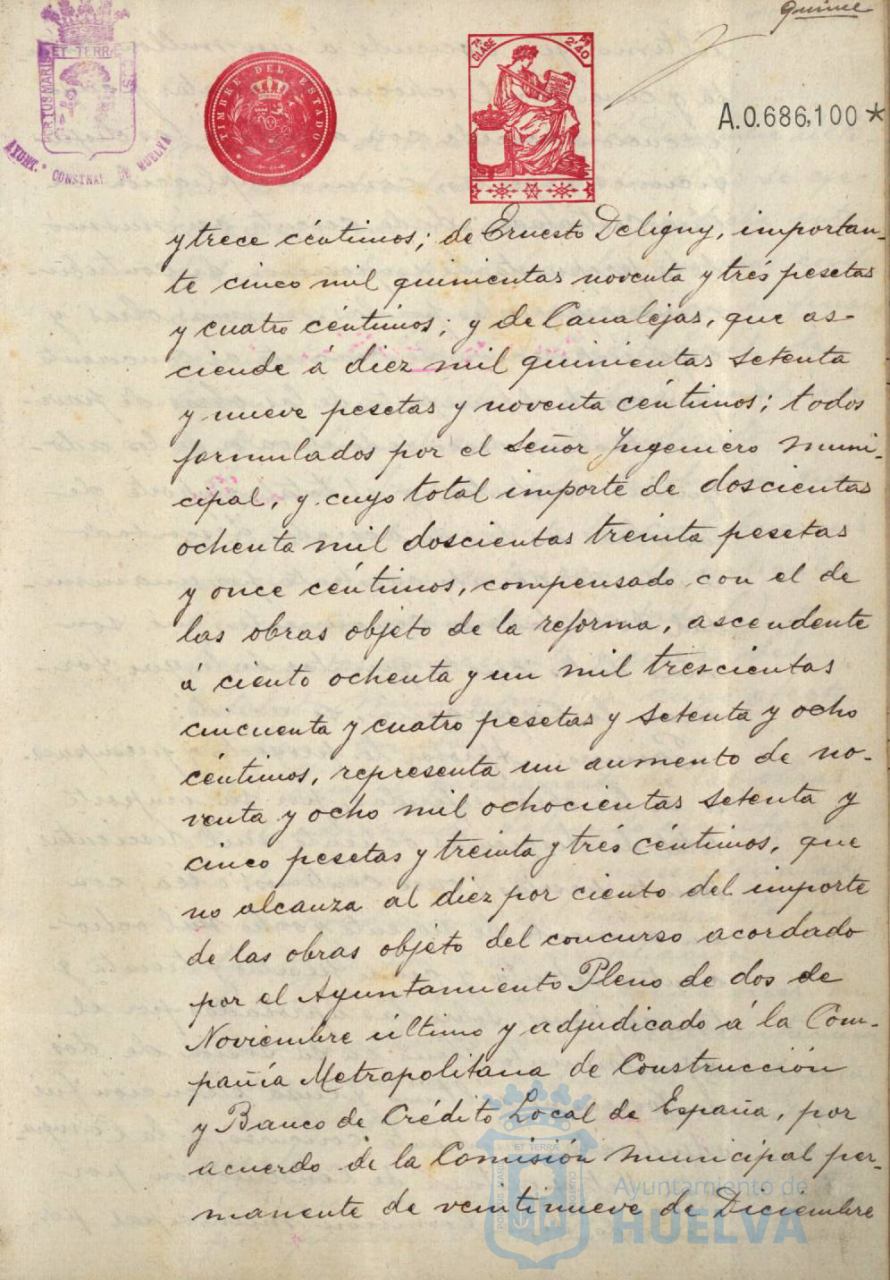 Quince
ET TERRÆ
PORTUS MARIS
AYUNT.º CONSTNAL. DE HUELVA
TIMBRE DEL ESTADO
7ª CLASE
2'40
A.0.686,100*
y trece céntimos; de Ernesto Deligny, importan-
te cinco mil quinientas noventa y trés pesetas
y cuatro céntimos; y de Canalejas, que as-
ciende á diez mil quinientas setenta
y nueve pesetas y noventa céntimos; todos
formulados por el Señor Ingeniero muni-
cipal, y cuyo total importe de doscientas
ochenta mil doscientas treinta pesetas
y once céntimos, compensado con el de
las obras objeto de la reforma, ascendente
á ciento ochenta y un mil trescientas
cincuenta y cuatro pesetas y setenta y ocho
céntimos, representa un aumento de no-
venta y ocho mil ochocientas setenta y
cinco pesetas y treinta y trés céntimos, que
no alcanza al diez por ciento del importe
de las obras objeto del concurso acordado
por el Ayuntamiento Pleno de dos de
Noviembre último y adjudicado á la Com-
pañía Metropolitana de Construcción
y Banco de Crédito Local de España, por
acuerdo de la Comisión municipal per-
manente de veintinueve de Diciembre
ET TERRÆ
Ayuntamiento de
HUELVA